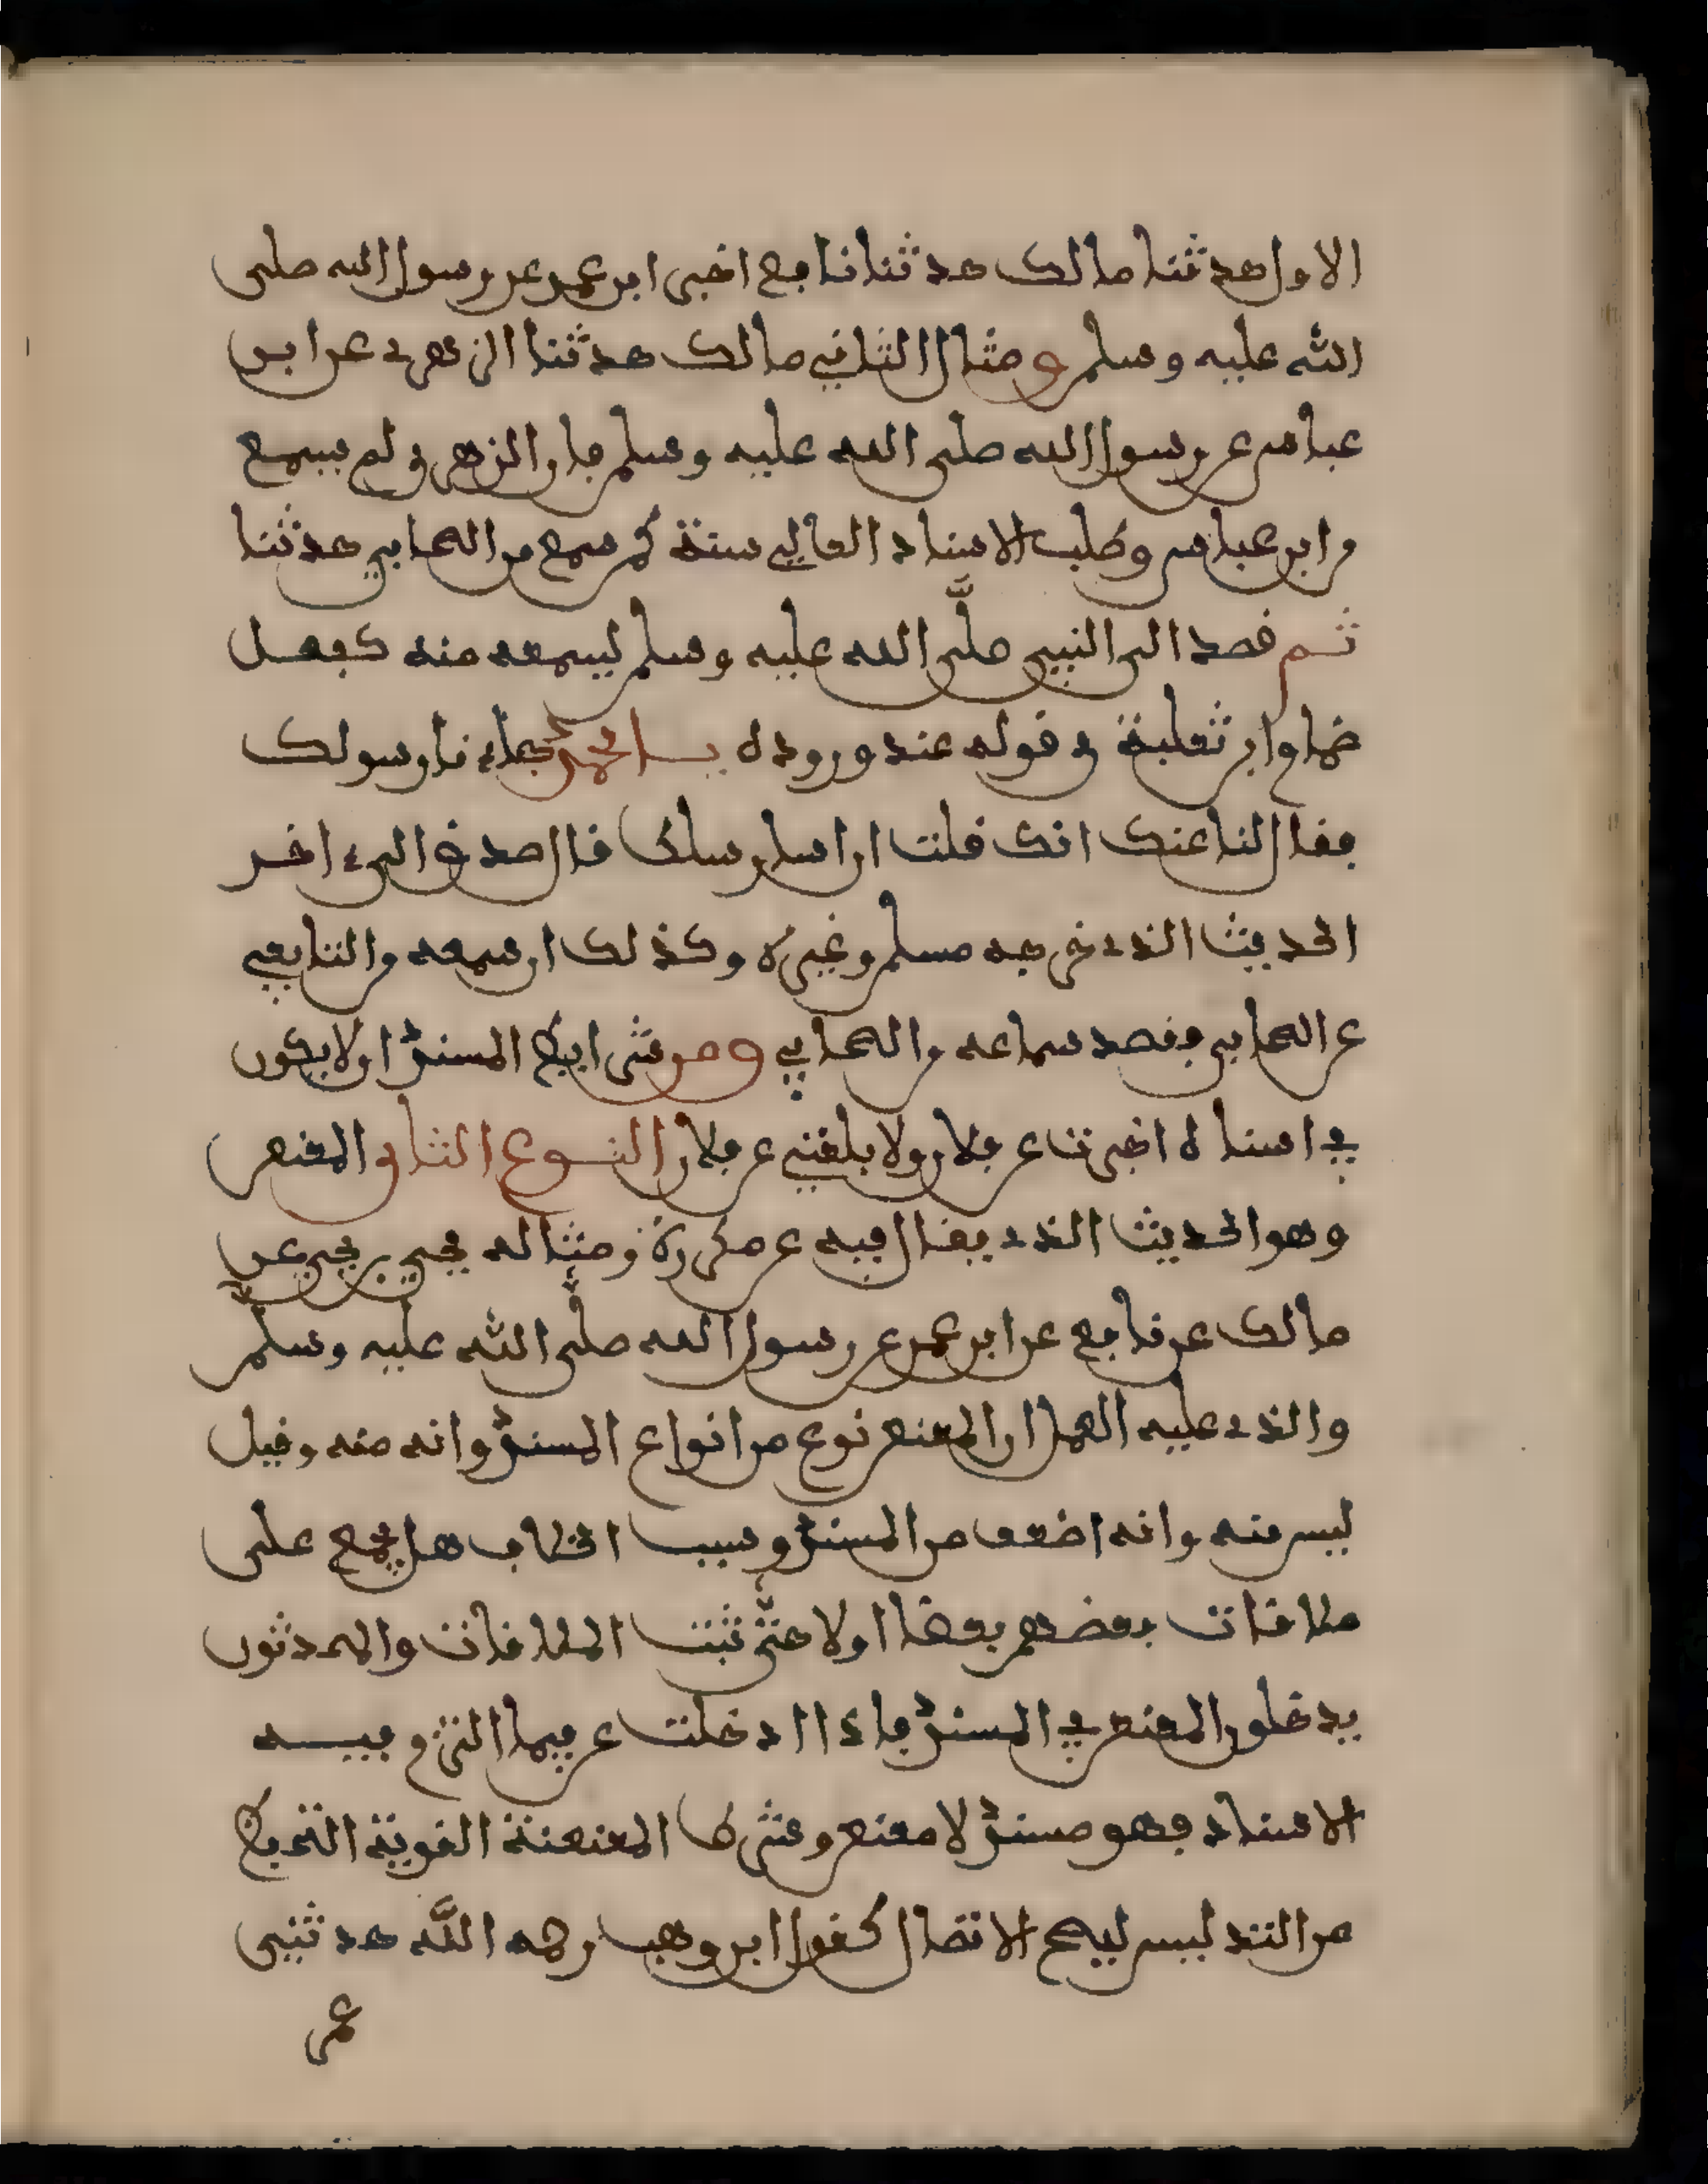 الاول حدثنا مالك حدثنا نافع اخبرني ابن عمر عن رسول الله صلى
الله عليه وسلم ومثال الثاني مالك حدثنا الزهري عن ابن
عباس عن رسول الله صلى الله عليه وسلم فان الزهري لم يسمع
من ابن عباس وطلب الاسناد العالي سنة كمن سمع من الصحابي حدثنا
ثم قصد الى النبي صلى الله عليه وسلم ليسمعه منه كفعل
ضمام ابن ثعلبة في قوله عند وروده يا محمد جاءنا رسولك
فقال لنا عنك انك قلت ان الله ارسلك قال صدق الى اخر
الحديث الذي خرجه مسلم وغيره وكذلك ان سمعه من التابعي
عن الصحابي فقصد سماعه من الصحابي ومن شرط المسند ان لا يكون
في اسناده اخبرت عن فلان ولا بلغني عن فلان النوع الثاني المعنعن
وهو الحديث الذي يقال فيه عن مكررة ومثاله يحيى بن يحيى عن
مالك عن نافع عن ابن عمر عن رسول الله صلى الله عليه وسلم
والذي عليه العمل ان المعنعن نوع من انواع المسند وانه منه وقيل
ليس منه وانه اضعف من المسند وسبب الخلاف هل يحمل على
ملاقات بعضهم بعضا اولا حتى تثبت الملاقات والمحدثون
يدخلون المعنعن في المسند فاذا ادخلت عن فيما التزم فيه
الاسناد فهو مسند لا معنعن وشرط المعنعنة القوية التحفظ
من التدليس ليصح الاتصال كقول ابن وهب رحمه الله حدثني
عمر